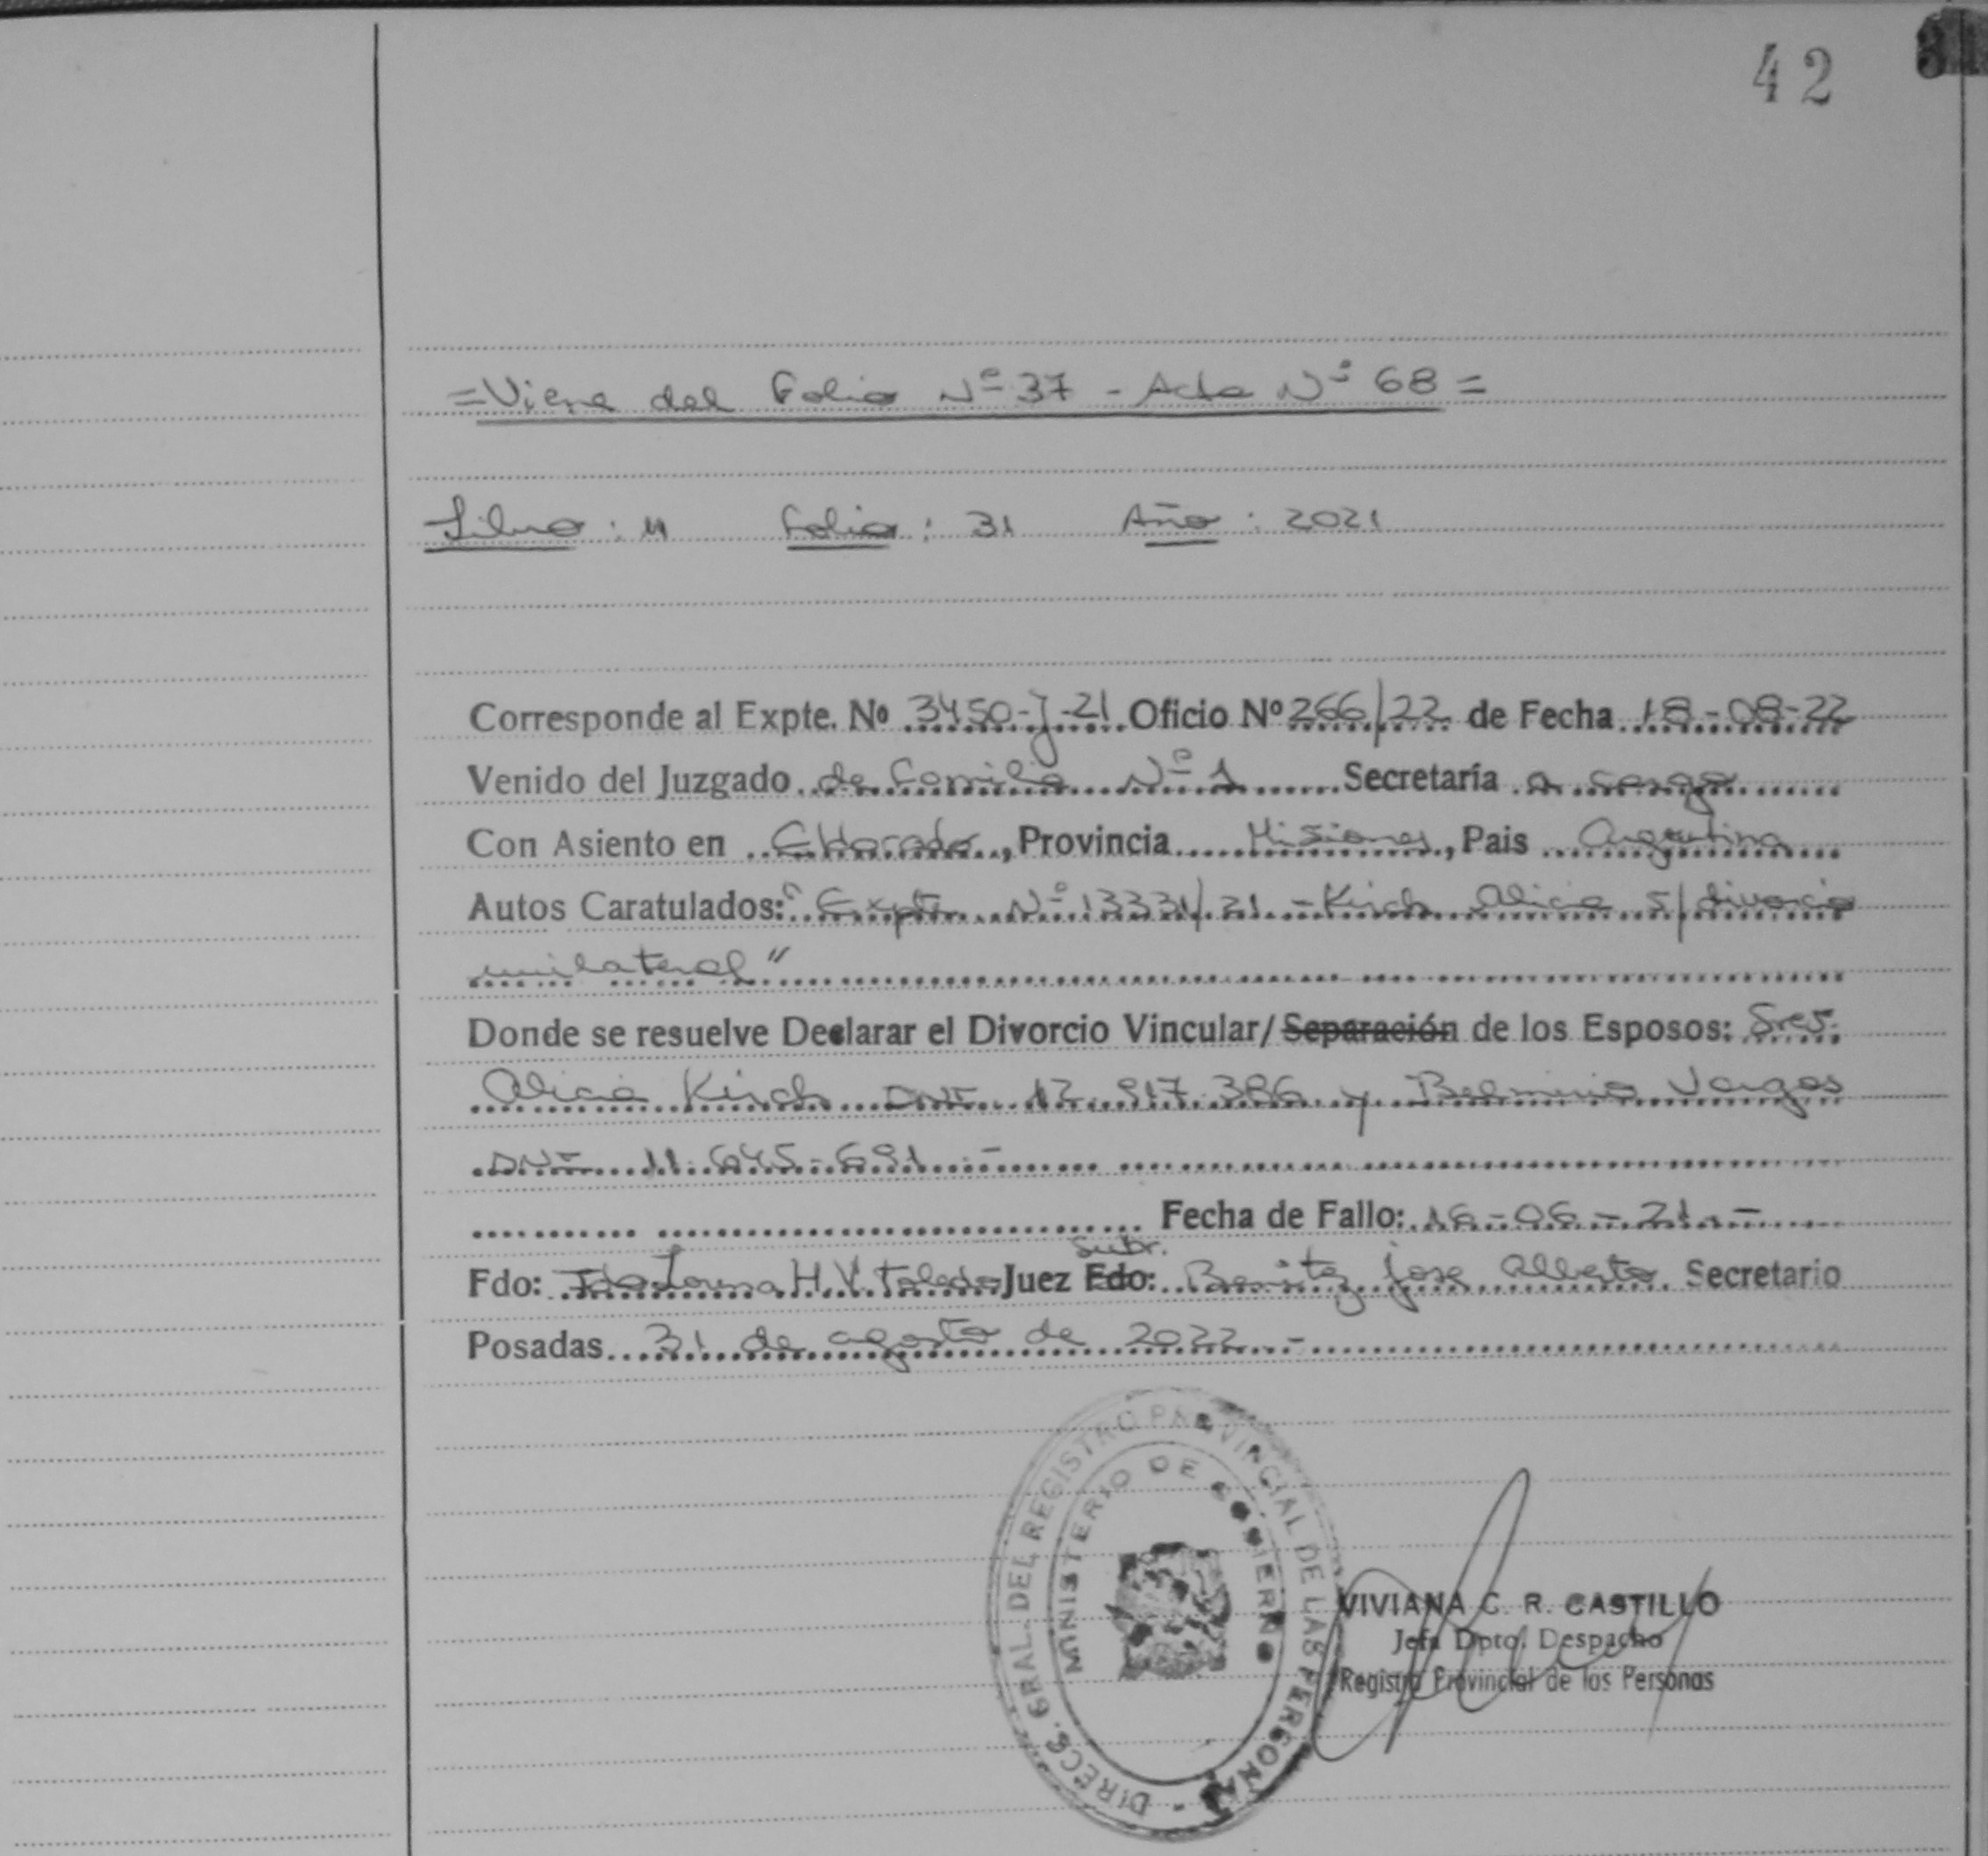 42
=Viene del Folio Nº 37 - Acta Nº 68=
Libro: 11 Folio: 31 Año: 2021
Corresponde al Expte. Nº 3450-J-21 Oficio Nº 266/22 de Fecha 18-08-22
Venido del Juzgado de Familia Nº 1 Secretaría a cargo
Con Asiento en Eldorado, Provincia Misiones, Pais Argentina
Autos Caratulados: "Expte. Nº 13331/21 - Kirch Alicia s/divorcio
unilateral"
Donde se resuelve Declarar el Divorcio Vincular/Separación de los Esposos: Sres.
Alicia Kirch DNI 12.917.386 y Belmiro Vargas
DNI 11.645.691.-
Fecha de Fallo: 16-06-21.-
Subr.
Fdo: Ida Lorena H.V. Toledo Juez Fdo: Benitez Jose Alberto Secretario
Posadas 31 de agosto de 2022.-
DIRECC. GRAL. DEL REGISTRO PROVINCIAL DE LAS PERSONAS -
MINISTERIO DE GOBIERNO
VIVIANA C. R. CASTILLO
Jefa Dpto. Despacho
Registro Provincial de las Personas